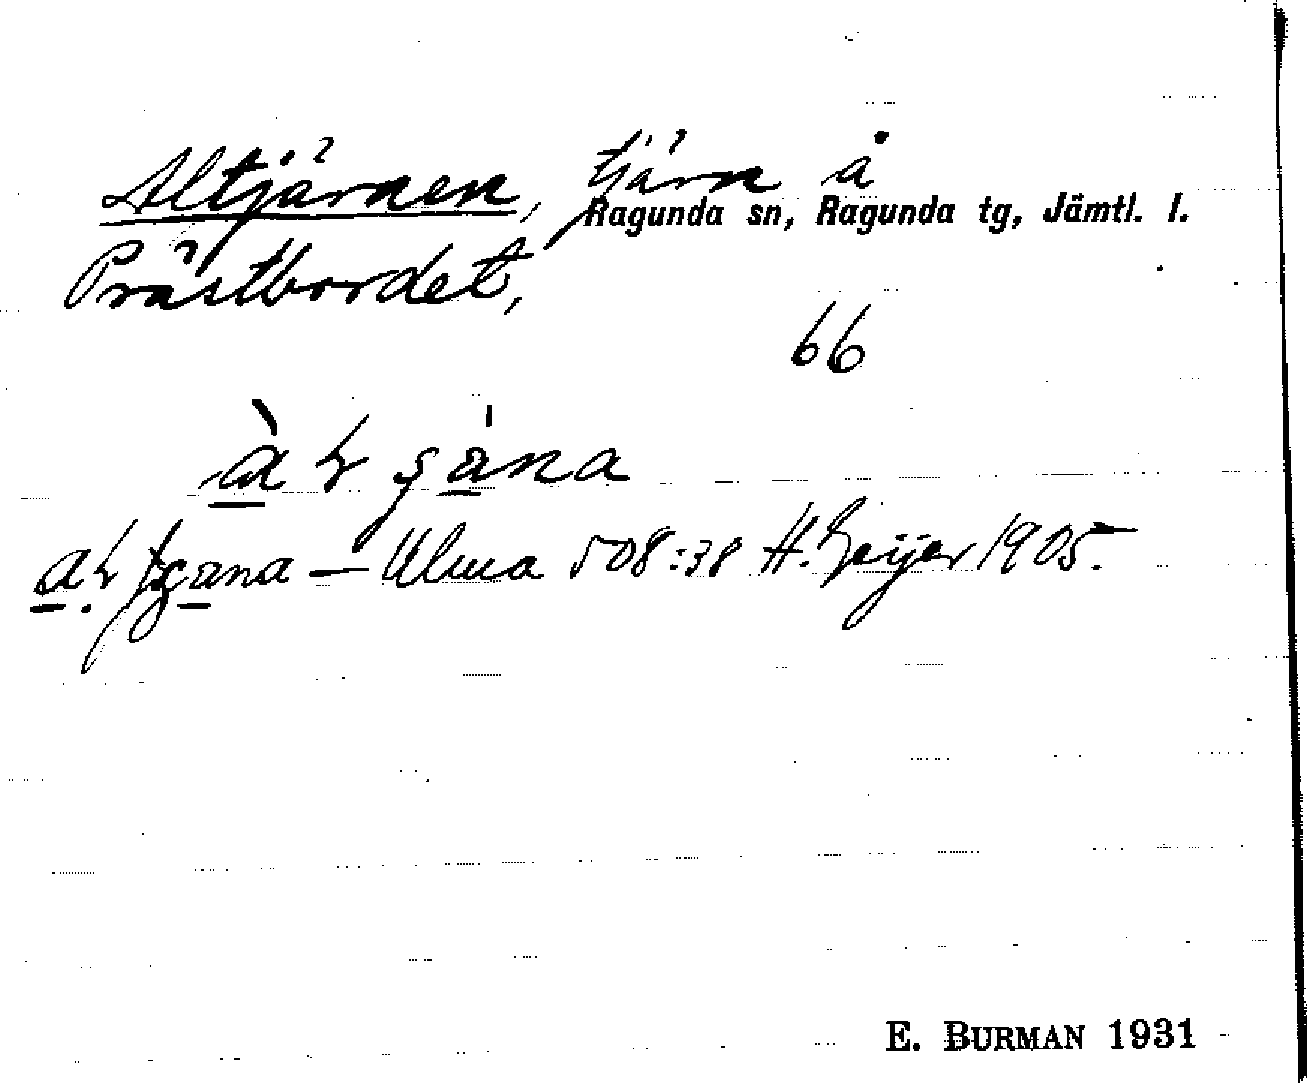 Altjärnen, tjärn å
Ragunda sn, Ragunda tg, Jämtl. l.
Prästbordet,
66
– Ulma 508:38 H. Geijer 1905.
E. BURMAN 1931